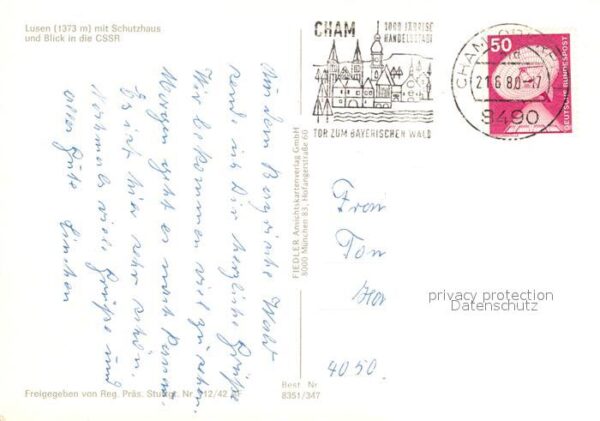 Lusen (1373 m) mit Schutzhaus
und Blick in die CSSR
CHAM
1000 JÄHRIGE
HANDELSSTADT
TOR ZUM BAYERISCHEN WALD
CHAM
21.6.80.-7
8490
50
DEUTSCHE BUNDESPOST
Aus dem Bayrische Wald
send ich Dir herzliche Grüße
Wir bekommen viel zu sehen.
Morgen geht es nach Passau.
Es ist hier sehr schön.
Nochmals viele Grüße und
alles Gute
FIEDLER Ansichtskartenverlag GmbH
8000 München 83, Hofangerstraße 60
Frau
Ton
4050.
privacy protection
Datenschutz
Freigegeben von Reg. Präs. Stuttgt. Nr. 712/42
Best. Nr
8351/347